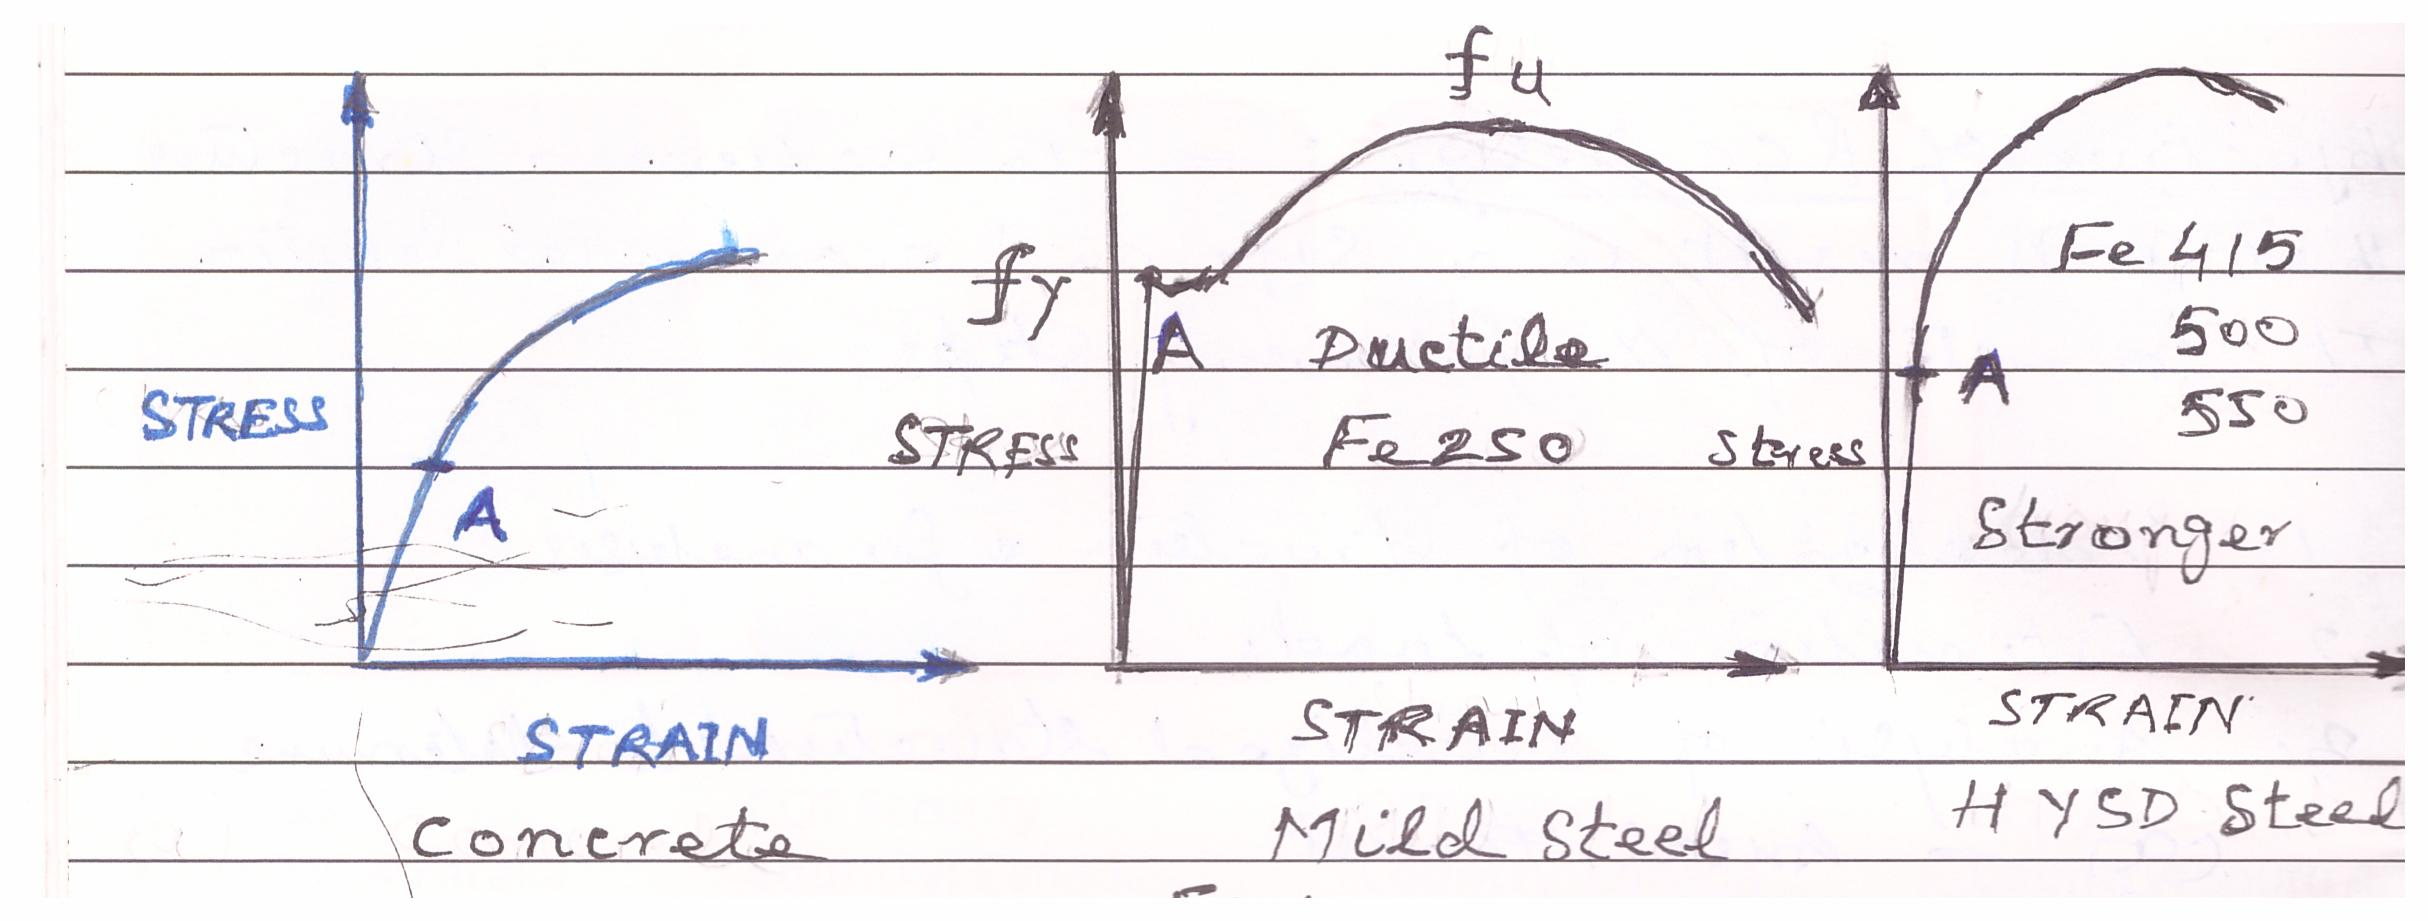 STRESS
A
STRAIN
Concrete
fu
fy
A
Ductile
Fe 250
STRESS
STRAIN
Mild Steel
Fe 415
500
550
A
Stress
Stronger
STRAIN
HYSD Steel